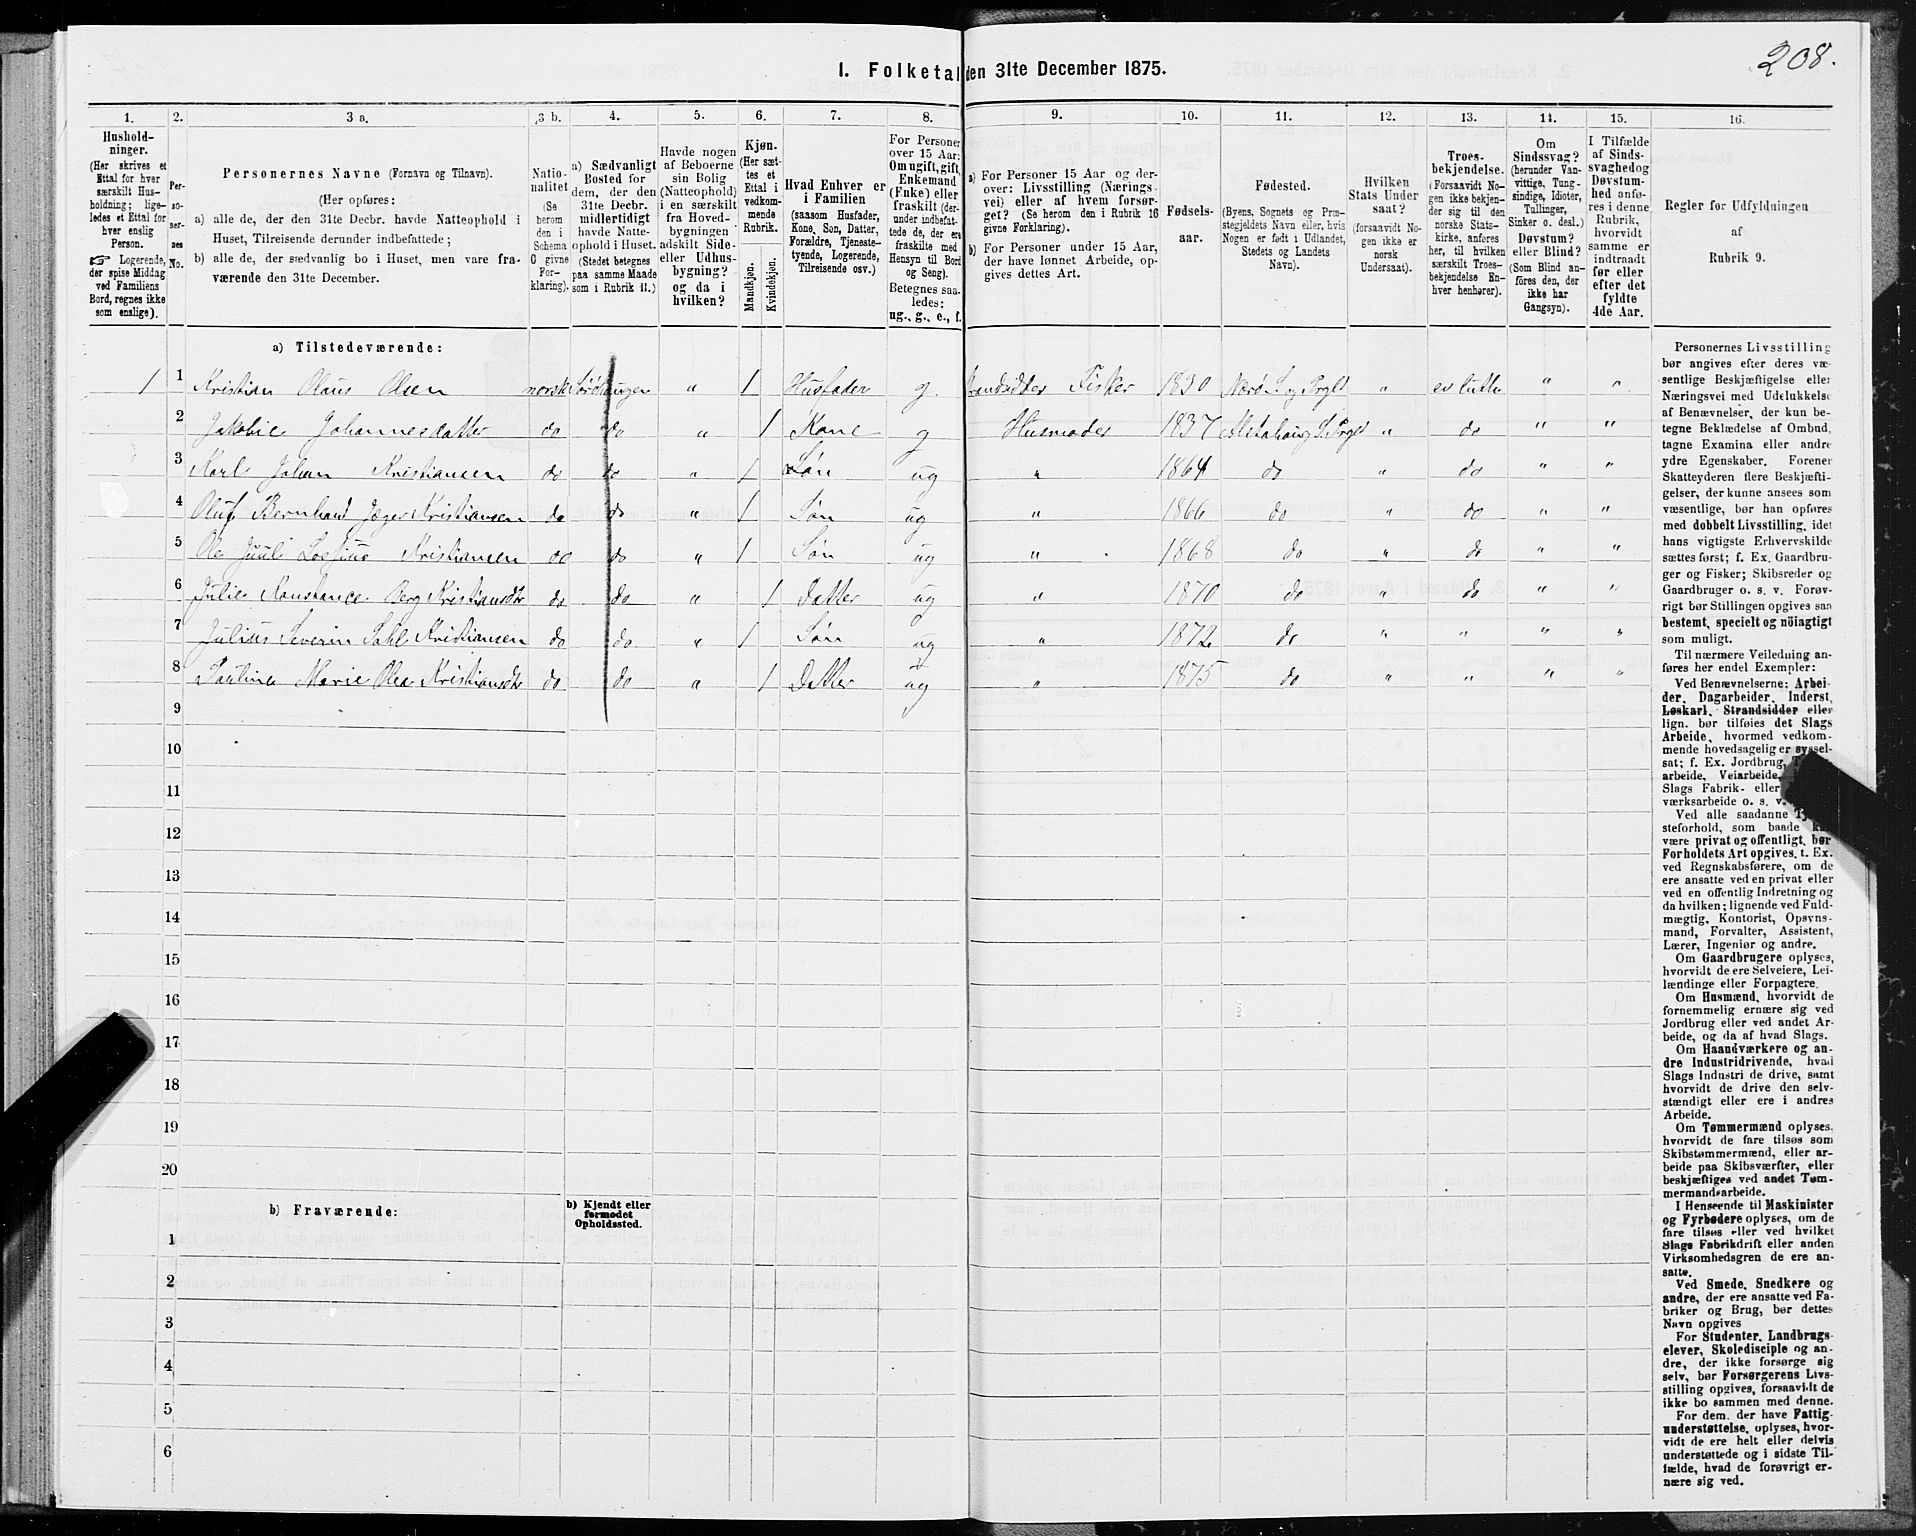 208.
1. Folketal den 31te December 1875.
1. 2. 3 a. 3 b. 4. 5. 6. 7. 8. 9. 10. 11. 12. 13. 14. 15. 16.
Hushold-
ninger.
(Her skrives et
Ettal for hver
særskilt Hus-
holdning; lige-
ledes et Ettal for
hver enslig
Person.
☞ Logerende,
der spise Middag
ved Familiens
Bord, regnes ikke
som enslige).
Per-
so-
ner-
nes
No.
Personernes Navne (Fornavn og Tilnavn).
(Her opføres:
a) alle de, der den 31te Decbr. havde Natteophold i
Huset, Tilreisende derunder indbefattede;
b) alle de, der sædvanlig bo i Huset, men vare fra-
værende den 31te December.
Natio-
nalitet
(Se
herom
den i
Schema
C givne
For-
klaring).
a) Sædvanligt
Bosted for
dem, der den
31te Decbr.
midlertidigt
havde Natte-
ophold i Huset.
(Stedet betegnes
paa samme Maade
som i Rubrik 11.)
Havde nogen
af Beboerne
sin Bolig
(Natteophold)
i en særskilt
fra Hoved-
bygningen
adskilt Side-
eller Udhus-
bygning?
og da i
hvilken?
Kjøn.
(Her sæt-
tes et
Ettal i
vedkom-
mende
Rubrik.
Mandkjøn.
Kvindekjøn.
Hvad Enhver er
i Familien
(saasom Husfader,
Kone, Søn, Datter,
Forældre, Tjeneste-
tyende, Logerende,
Tilreisende osv.)
For Personer
over 15 Aar:
Om ugift, gift,
Enkemand
(Enke) eller
fraskilt (der-
under indbefat-
tede de, der ere
fraskilte med
Hensyn til Bord
og Seng).
Betegnes saa-
ledes:
ug., g., e., f.
a) For Personer 15 Aar og der-
over: Livsstilling (Nærings-
vei) eller af hvem forsør-
get? (Se herom den i Rubrik 16
givne Forklaring).
b) For Personer under 15 Aar,
der have lønnet Arbeide, op-
gives dettes Art.
Fødsels-
aar.
Fødested.
(Byens, Sognets og Præ-
stegjeldets Navn eller, hvis
Nogen er født i Udlandet,
Stedets og Landets
Navn).
Hvilken
Stats Under
saat?
(forsaavidt No-
gen ikke er
norsk
Undersaat).
Troes-
bekjendelse.
(Forsaavidt No-
gen ikke bekjen-
der sig til den
norske Stats-
kirke, anføres
her, til hvilken
særskilt Troes-
bekjendelse En-
hver henhører).
Om
Sindssvag?
(herunder Van-
vittige, Tung-
sindige, Idioter,
Tullinger,
Sinker o. desl.)
Døvstum?
eller Blind?
(Som Blind an-
føres den, der
ikke har
Gangsyn).
I Tilfælde
af Sinds-
svaghed og
Døvstum-
hed anfø-
res i denne
Rubrik,
hvorvidt
samme er
indtraadt
før eller
efter det
fyldte
4de Aar.
Regler for Udfyldningen
af
Rubrik 9.
a) Tilstedeværende:
1 1 Kristian Olaus Olsen norsk „ 1 Husfader g. Strandsidder Fisker 1830 Nærø S og Prgld „ ev luth „ „
2 Jakobie Johannesdatter do do „ 1 Kone g Husmoder 1837 Alstahoug S. Prgld „ do „ „
3 Karl Johan Kristiansen do do „ 1 Søn ug „ 1864 do „ do „ „
4 Oluf Bernhard Jæger Kristiansen do do „ 1 Søn ug „ 1866 do „ do „ „
5 Ole Juul Lossius Kristiansen do do „ 1 Søn ug „ 1868 do „ do „ „
6 Julie Konstance Berg Kristiansdtr do do „ 1 Datter ug „ 1870 do „ do „ „
7 Julius Severin Kristiansen do do „ 1 Søn ug „ 1872 do „ „ „ „
8 Paulina Marie Olea Kristiansdtr do do „ 1 Datter ug „ 1875 do „ „ „ „
9
10
11
12
13
14
15
16
17
18
19
20
b) Fraværende:
b) Kjendt eller
formodet
Opholdssted.
1
2
3
4
5
6
Personernes Livsstilling
bør angives efter deres væ-
sentlige Beskjæftigelse eller
Næringsvei med Udelukkelse
af Benævnelser, der kun be-
tegne Beklædelse af Ombud,
tagne Examina eller andre
ydre Egenskaber. Forener
Skatteyderen flere Beskjæfti-
gelser, der kunne ansees som
væsentlige, bør han opføres
med dobbelt Livsstilling, idet
hans vigtigste Erhvervskilde
sættes først; f. Ex. Gaardbru-
ger og Fisker; Skibsreder og
Gaardbruger o. s. v. Forøv-
rigt bør Stillingen opgives saa
bestemt, specielt og nöiagtigt
som muligt.
Til nærmere Veiledning an-
føres her endel Exempler:
Ved Benævnelserne: Arbei-
der, Dagarbeider, Inderst,
Løskarl, Strandsidder eller
lign. bør tilføies det Slags
Arbeide, hvormed vedkom-
mende hovedsagelig er syssel-
sat; f. Ex. Jordbrug,
arbeide, Veiarbeide,
Slags Fabrik- eller
værksarbeide o. s. v.
Ved alle saadanne
steforhold, som baade
være privat og offentligt, bør
Forholdets Art opgives, t. Ex.
ved Regnskabsførere, om de
ere ansatte ved en privat eller
ved en offentlig Indretning og
da hvilken; lignende ved Fuld-
mægtig, Kontorist, Opsyns-
mand, Forvalter, Assistent,
Lærer, Ingeniør og andre.
Om Gaardbrugere oplyses,
hvorvidt de ere Selveiere, Lei-
lændinge eller Forpagtere.
Om Husmænd, hvorvidt de
fornemmelig ernære sig ved
Jordbrug eller ved andet Ar-
beide, og da af hvad Slags.
Om Haandværkere og an-
dre Industridrivende, hvad
Slags Industri de drive, samt
hvorvidt de drive den selv-
stændigt eller ere i andres
Arbeide.
Om Tømmermænd oplyses,
hvorvidt de fare tilsøs som
Skibstømmermænd, eller ar-
beide paa Skibsværfter, eller
beskjæftiges ved andet Tøm-
mermandsarbeide.
I Henseende til Maskinister
og Fyrbødere oplyses, om de
fare tilsøs eller ved hvilket
Slags Fabrikdrift eller anden
Virksomhedsgren de ere an-
satte.
Ved Smede, Snedkere og
andre, der ere ansatte ved Fa-
briker og Brug, bør dettes
Navn opgives
For Studenter, Landbrugs-
elever, Skoledisciple og an-
dre, der ikke forsørge sig
selv, bør Forsørgerens Livs-
stilling opgives, forsaavidt de
ikke bo sammen med denne.
For dem, der have Fattig-
understøttelse, oplyses, hvor-
vidt de ere helt eller delvis
understøttede og i sidste Til-
fælde, hvad de forøvrigt er-
nære sig ved.